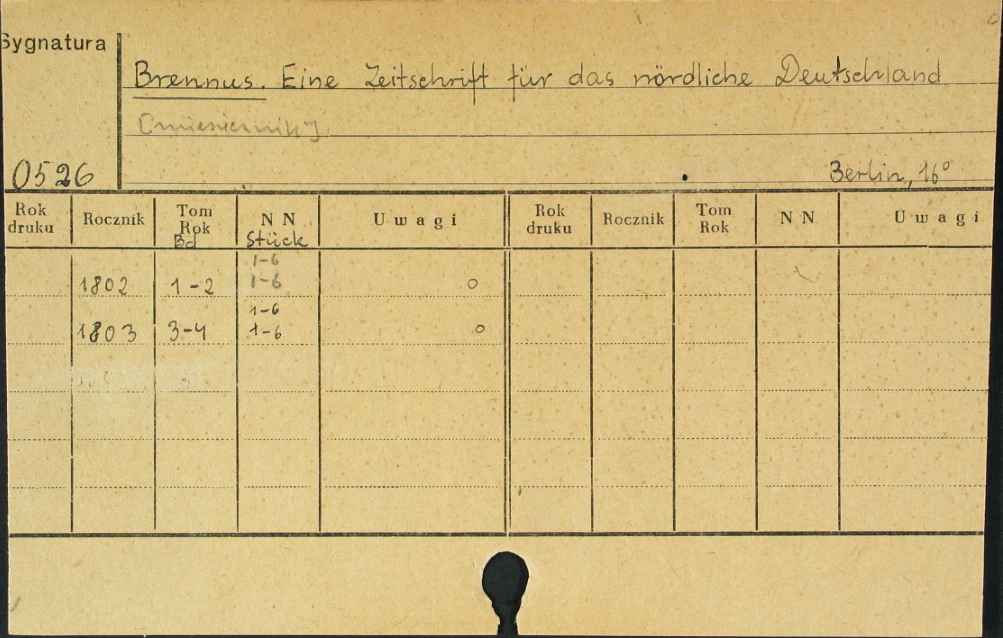 Sygnatura
Brennus. Eine Zeitschrift für das nördliche Deutschland
[miesięcznik]
0526
Berlin, 16°
Rok druku Rocznik Tom Rok Bd NN Stück Uwagi Rok druku Rocznik Tom Rok NN Uwagi
1-6
1802 1-2 1-6 o
1-6
1803 3-4 1-6 o